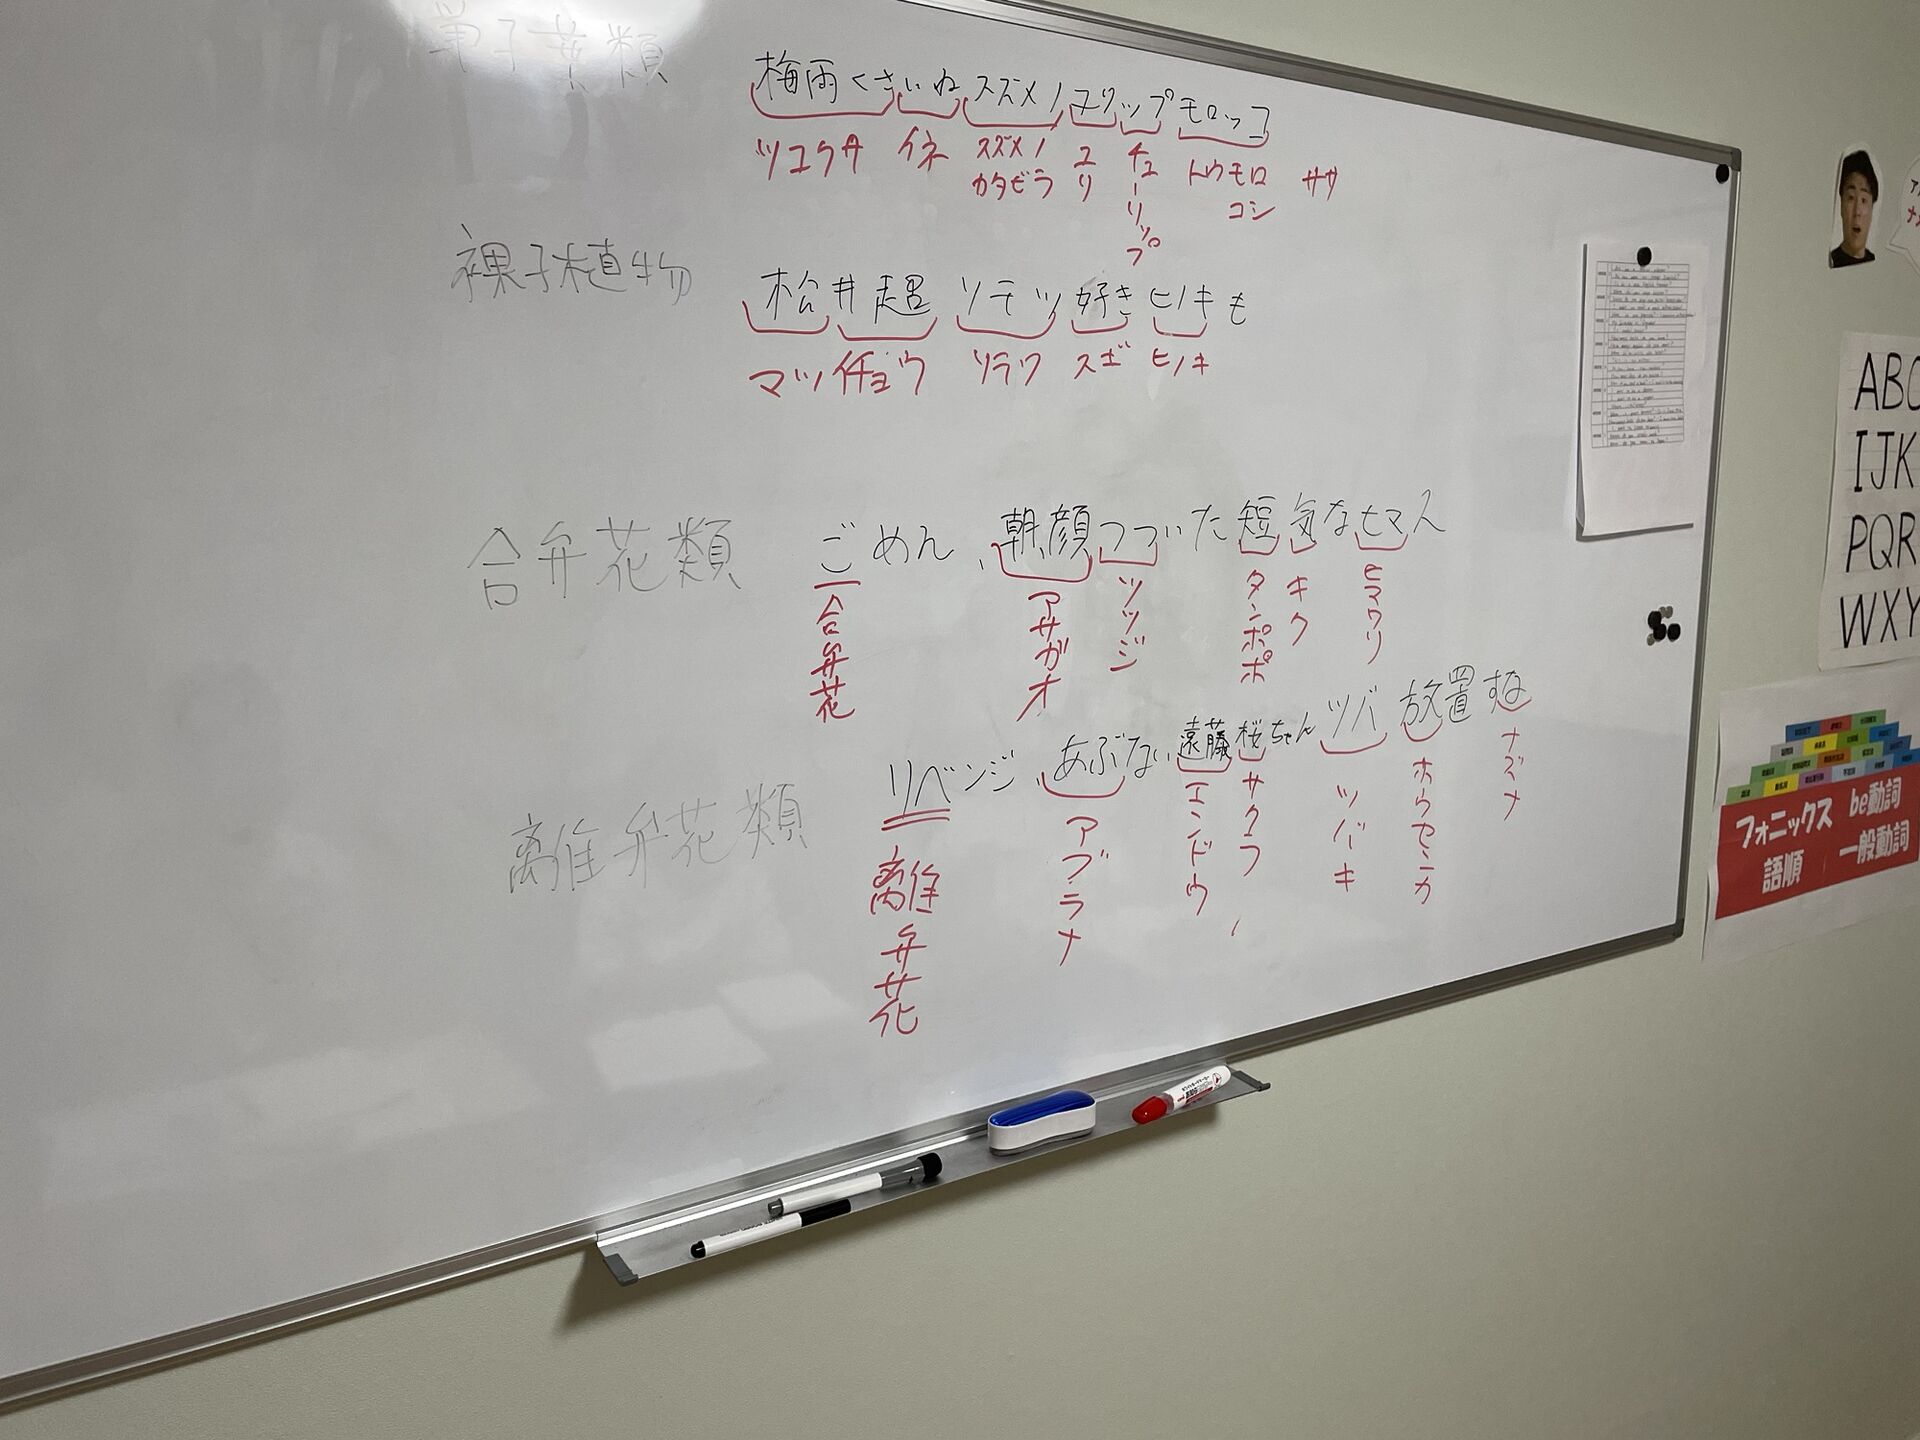 単子葉類
梅雨くさいね スズメノ ユリップ モロッコ
ツユクサ イネ スズメノカタビラ ユリ チューリップ トウモロコシ ササ
裸子植物
松井超 ソテツ好き ヒノキも
マツ イチョウ ソテツ スギ ヒノキ
合弁花類
ごめん、朝顔つづいた短気なヒマ人
合弁花 アサガオ ツツジ タンポポ キク ヒマワリ
離弁花類
リベンジ、あぶない遠藤桜ちゃん ツバ 放置すな
離弁花 アブラナ エンドウ サクラ ツバキ ホウセンカ ナズナ
ABC
IJK
PQR
WXY
フォニックス be動詞
語順 一般動詞